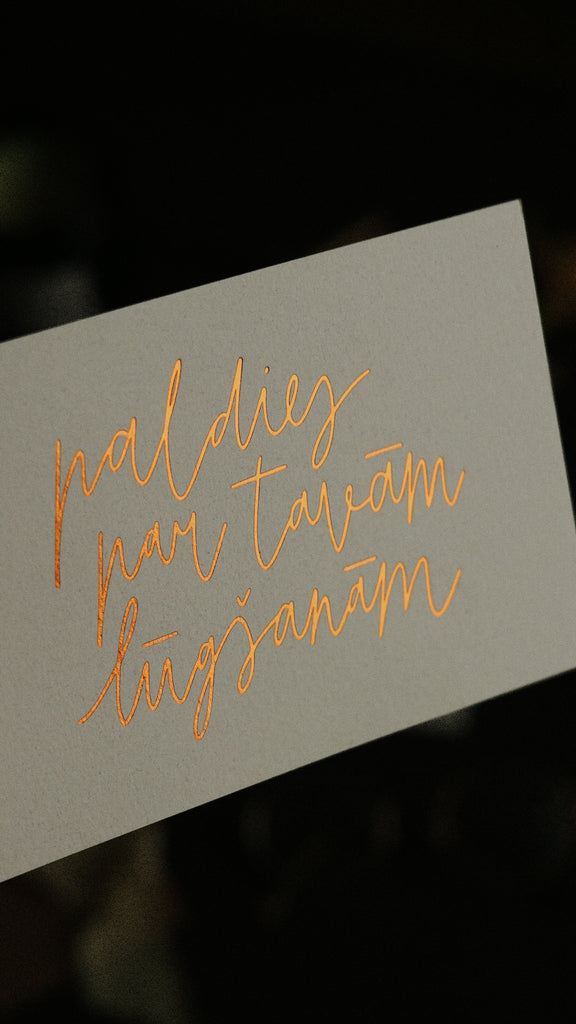 paldies
par tavām
lūgšanām